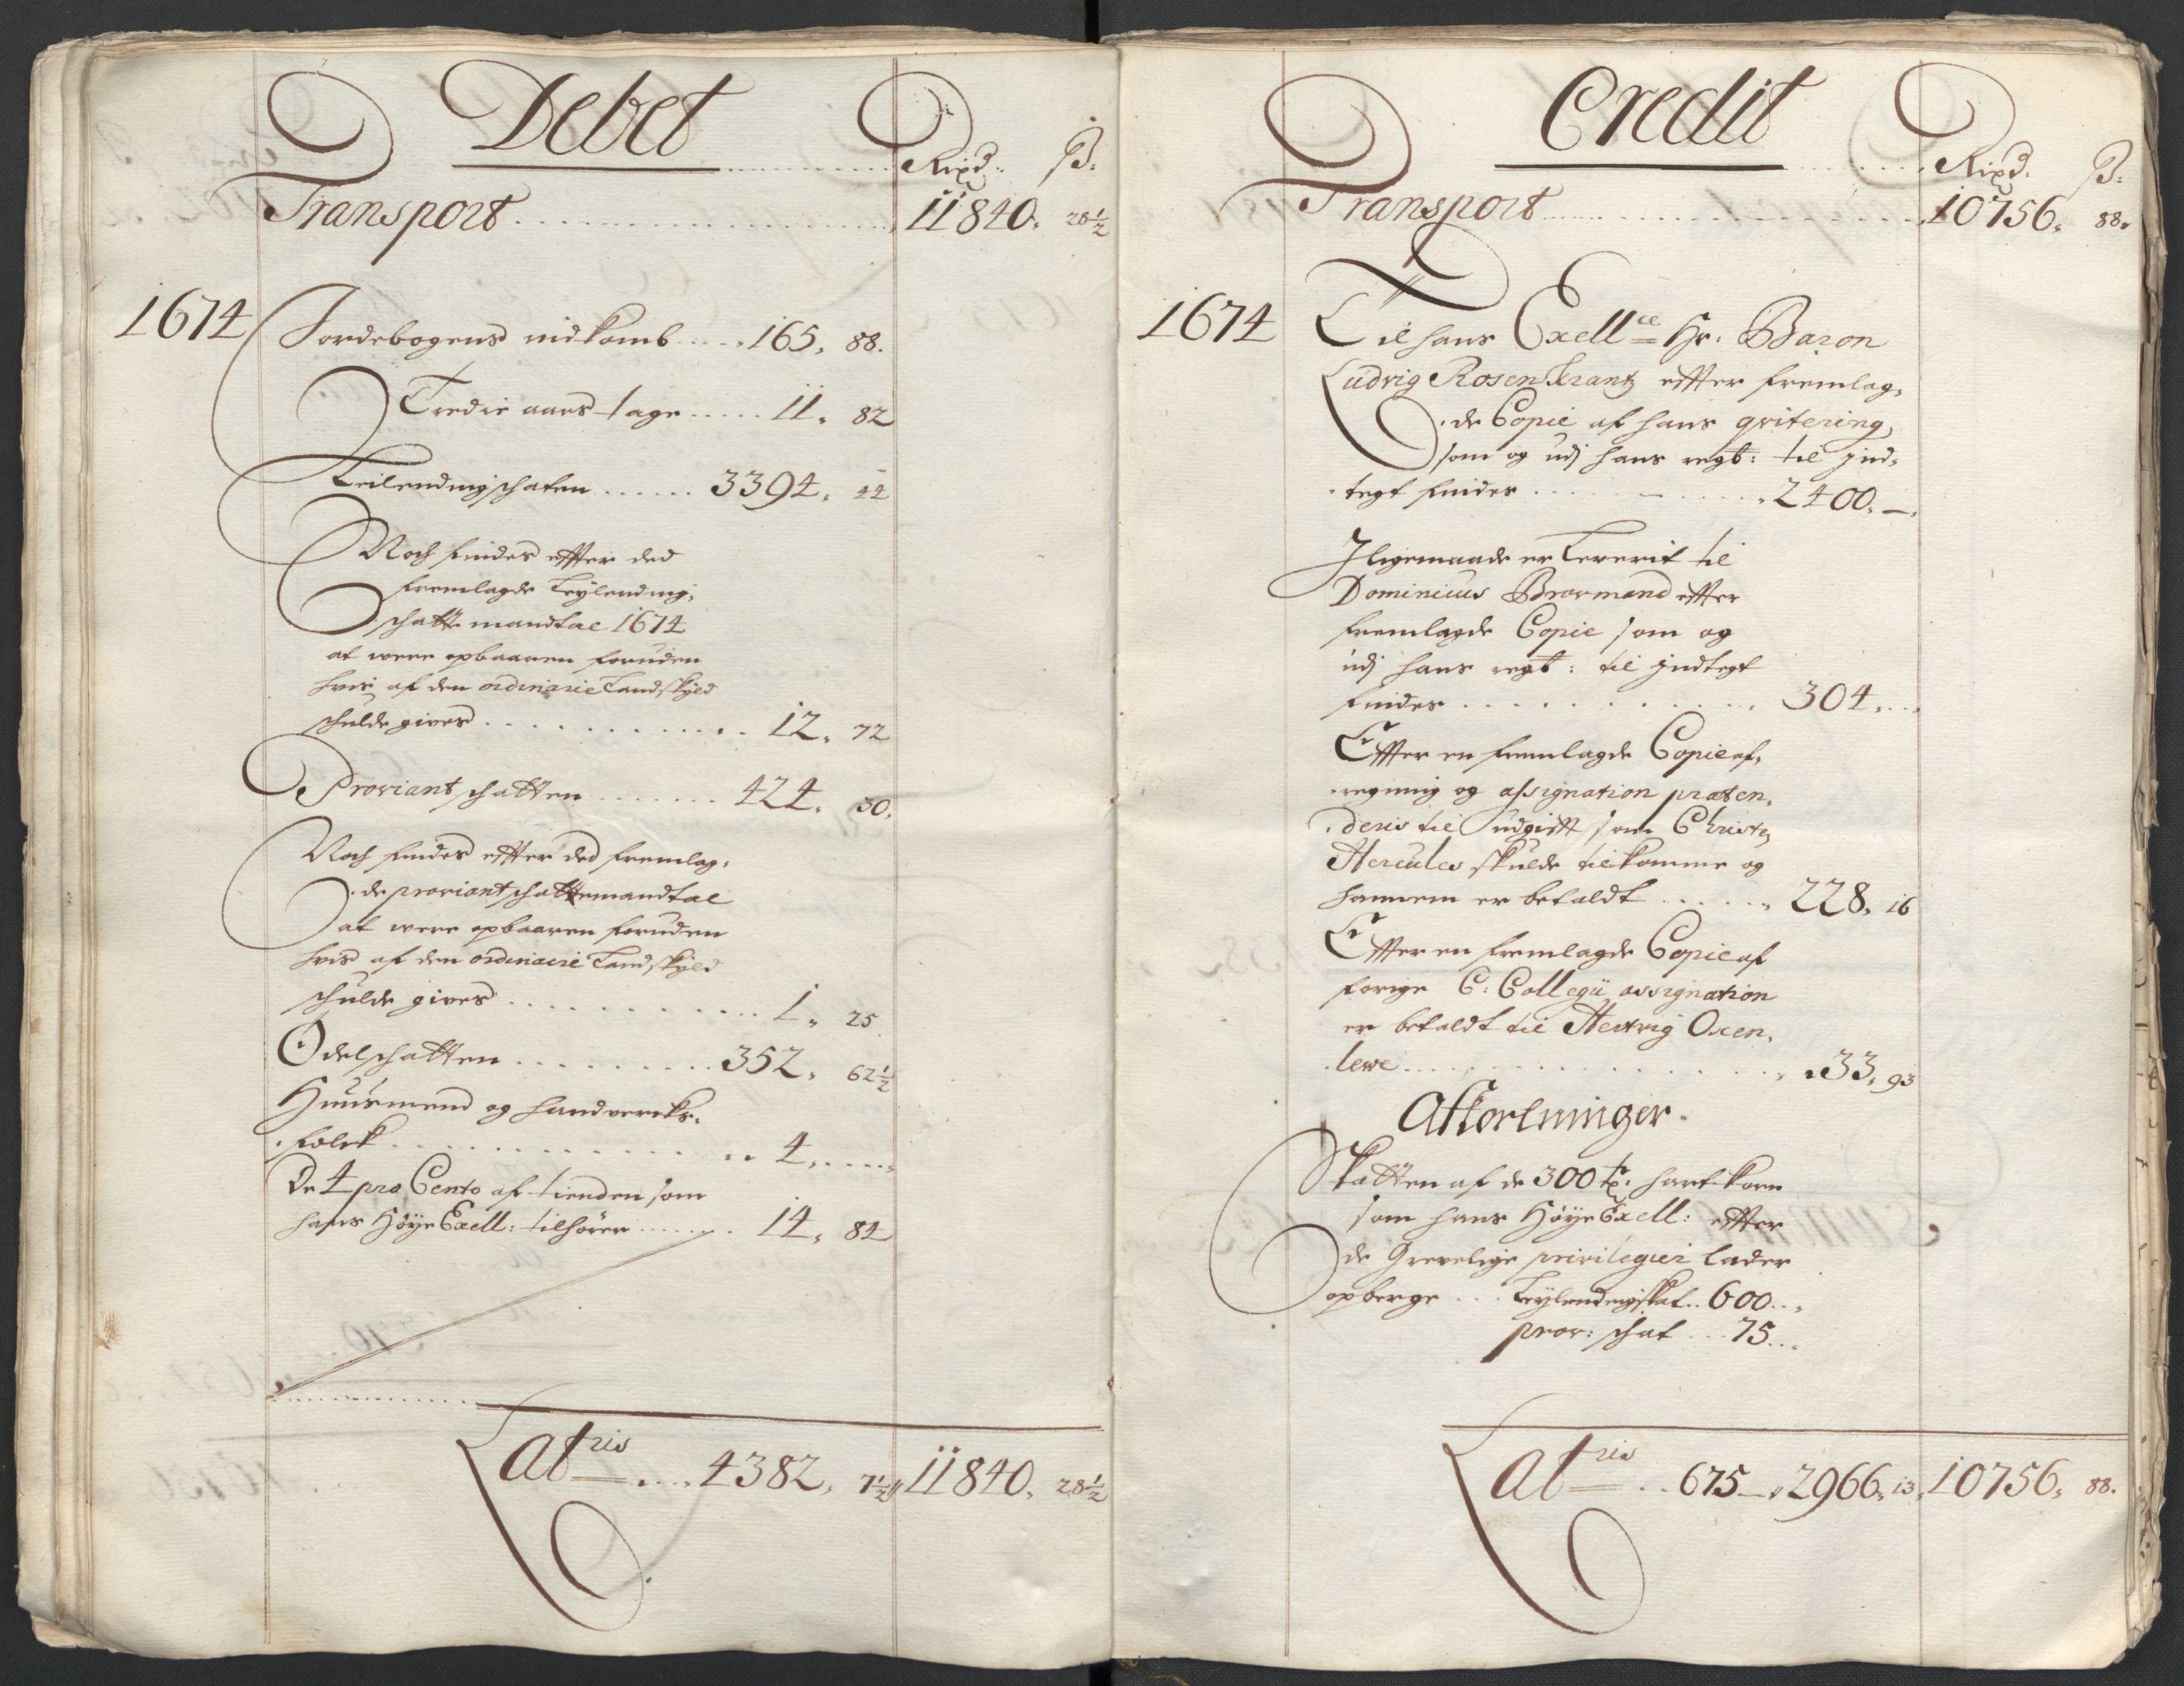 Debet
Rixd. ß:
Transport 11840. 28½
1674 Jordebogens indkomb 165. 88.
Tredie aars tage 11. 82
Leilendingschaten 3394. 44
Noch findes effter ded
fremlagde Leylending,
schatte mandtal 1674
at were opbaaren foruden
hvis af den ordinarie Landskyld
schulde gives 12. 72
Proviant schatten 424. 30.
Noch findes effter ded fremlag,
de proviant schattemandtal
at were opbaaren foruden
hvis af den ordinarie Landskyld
schulde gives 1. 25
Odelschatten 352. 62½
Huusmend og handverks,
folck 4.
De 4 pro Cento af tienden som
hans Høye Exell: tilhører 14. 84
Latris 4382. 7½ 11840. 28½
Credit
Rixd. ß:
Transport 10756. 88.
1674 Til hans Excell ce Hr: Baron
Ludvig Rosenkrantz effter fremlag,
de Copie af hans qvitering,
som og udj hans regb: til jnd,
tegt findes 2400. —
Jligemaade er Leverit til
Dominicus Brormand effter
fremlagde Copie som og
udj hans regb: til jndtegt
findes 304.
Effter en fremlagde Copie af,
regning og assignation præten,
deris til udgifft som Christen
Hercules skulde tilkomme og
hannem er betaldt 228. 16
Effter en fremlagde Copie af
forige C: Collegii assignation
er betaldt til Hertvig Oxen,
lewe 33. 93
Afkortninger.
Skatten af de 300 tr. hartkorn
som hans Høye Exell: effter
de Grevelige privilegier lader
opberge Leylendingskat 600
prov: schat 75
Latris 675 — 2966. 13. 10756. 88.